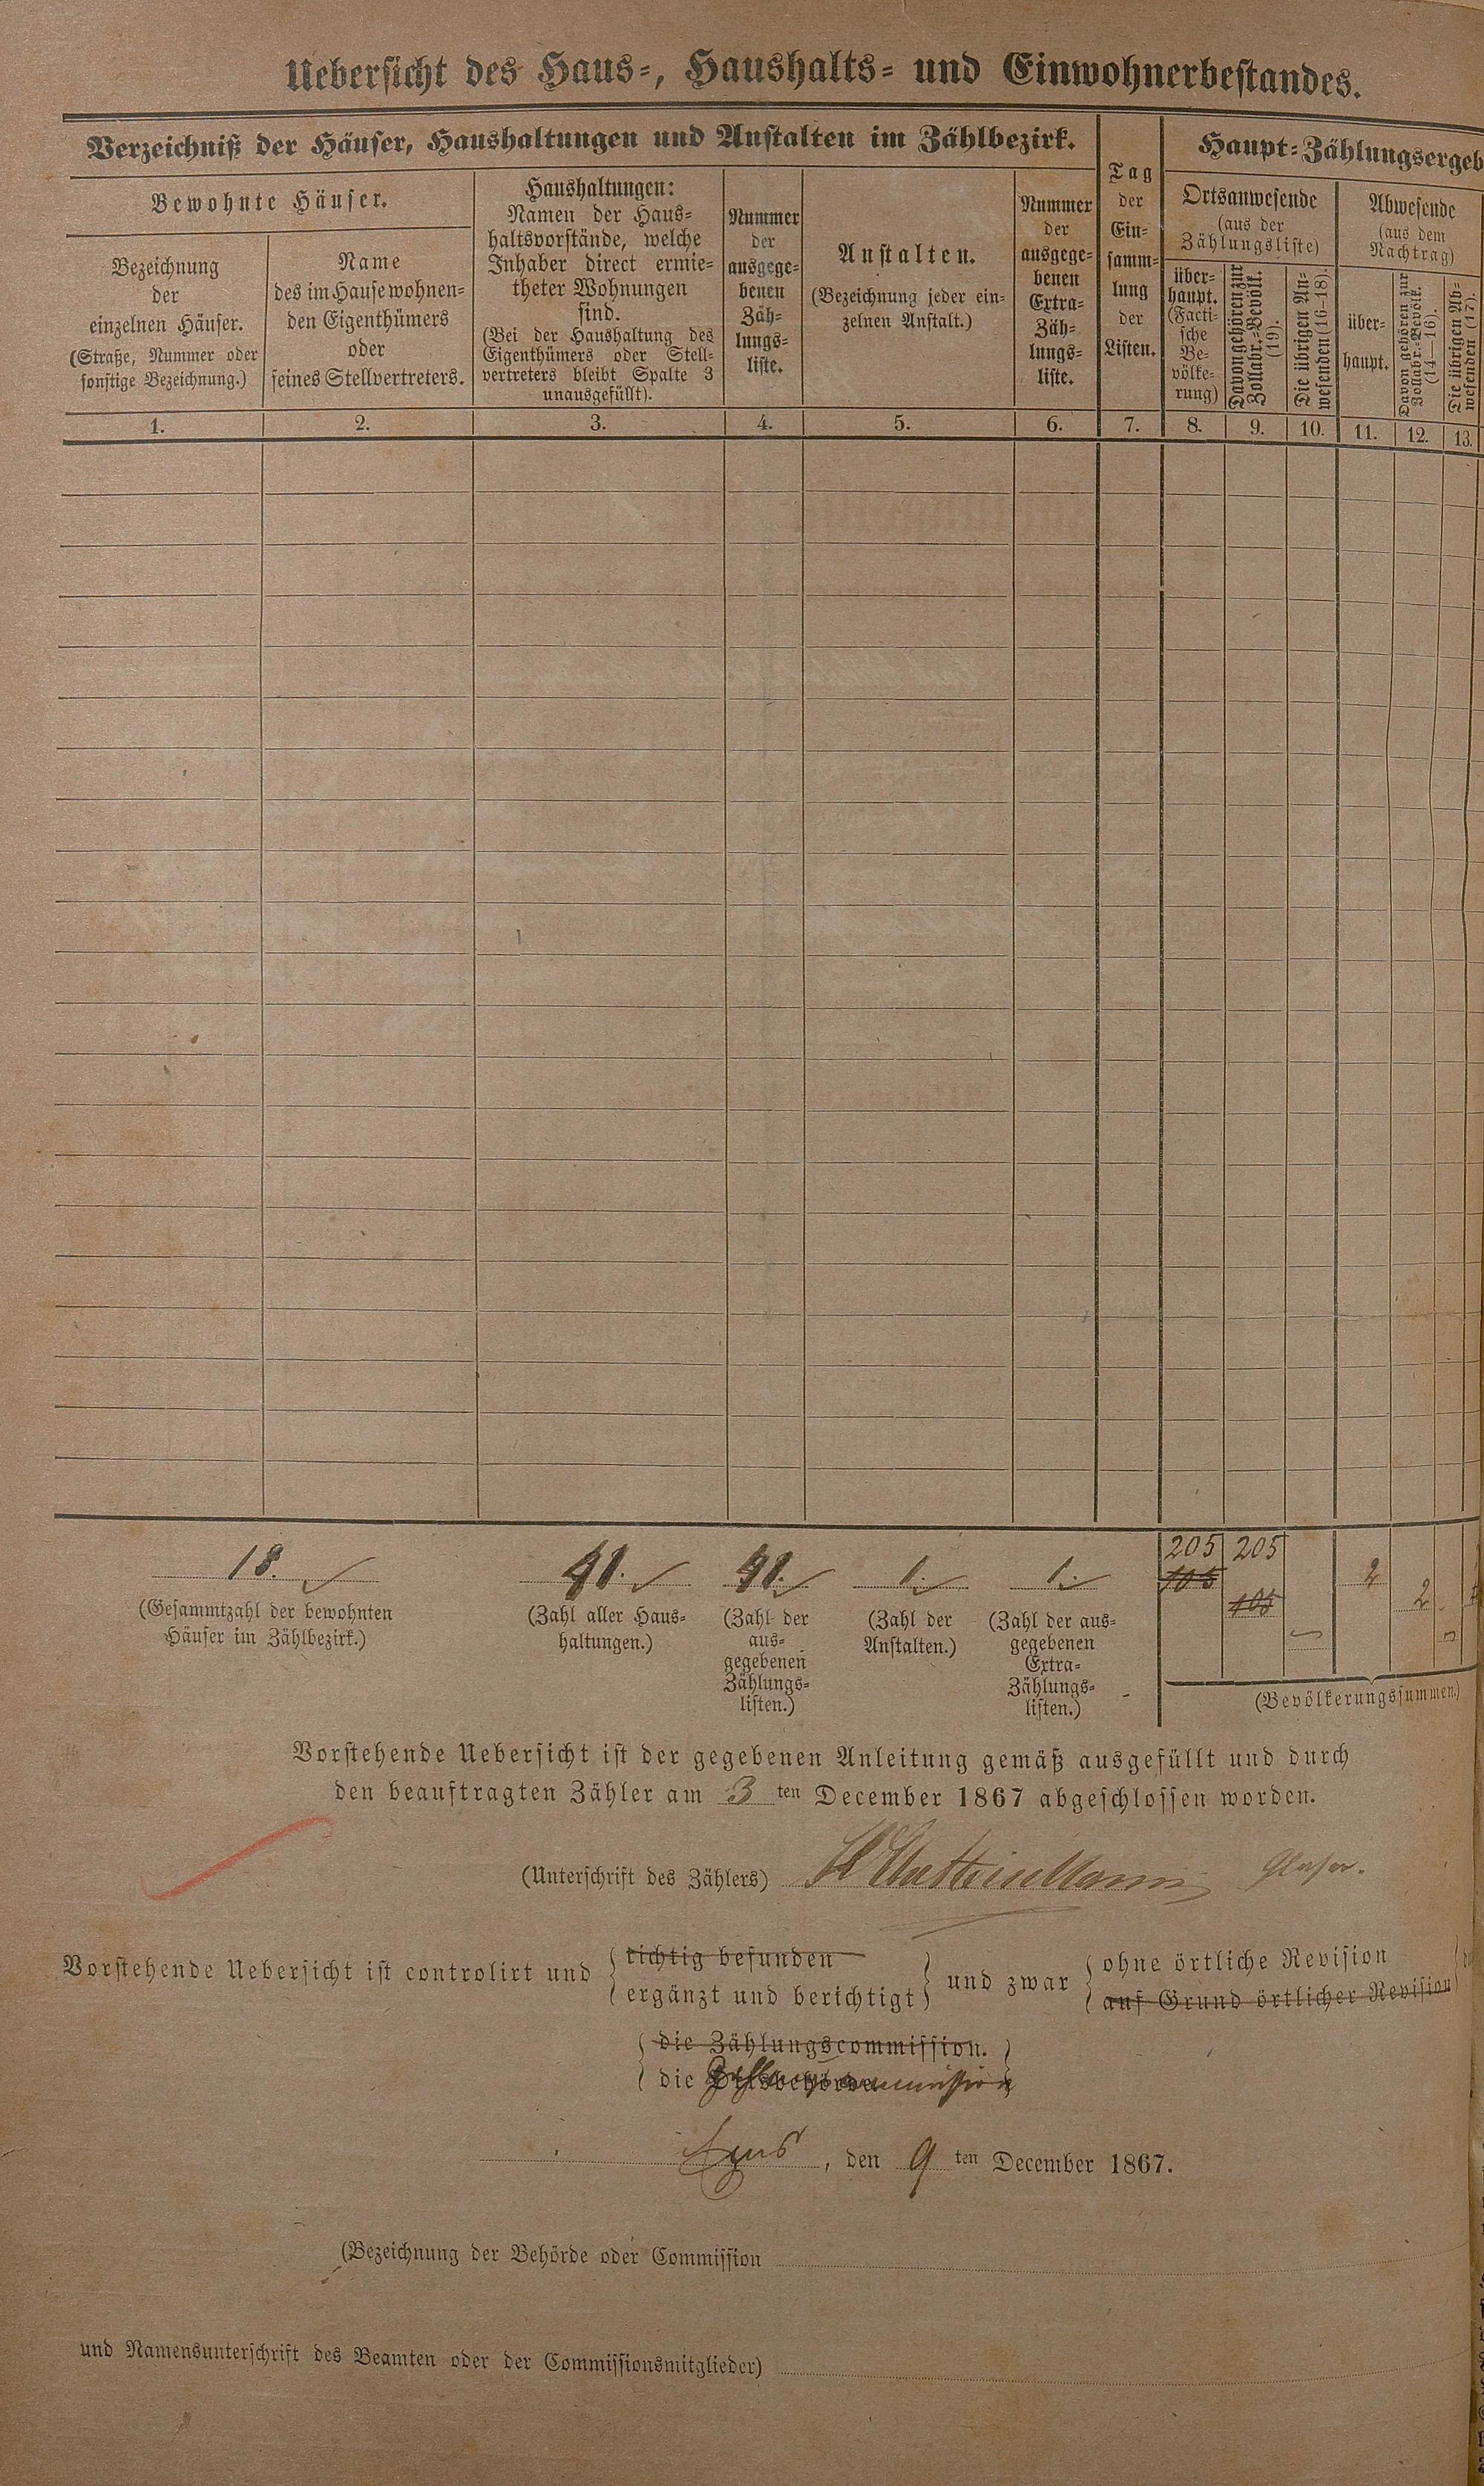 Uebersicht des Haus-, Haushalts- und Einwohnerbestandes.
Verzeichniß der Häuser, Haushaltungen und Anstalten im Zählbezirk.
Bewohnte Häuser.
Bezeichnung
der
einzelnen Häuser.
(Straße, Nummer oder
sonstige Bezeichnung.)
Name
des im Hause wohnen-
den Eigenthümers
oder
seines Stellvertreters.
Haushaltungen:
Namen der Haus-
haltsvorstände, welche
Inhaber direct ermie-
theter Wohnungen
sind.
(Bei der Haushaltung des
Eigenthümers oder Stell-
vertreters bleibt Spalte 3
unausgefüllt).
Nummer
der
ausgege-
benen
Zäh-
lungs-
liste.
Anstalten.
(Bezeichnung jeder ein-
zelnen Anstalt.)
Nummer
der
ausgege-
benen
Extra-
Zäh-
lungs-
liste.
Tag
der
Ein-
samm-
lung
der
Listen.
Haupt-Zählungsergeb
Ortsanwesende
(aus der
Zählungsliste)
über-
haupt.
(Facti-
sche
Be-
völke-
rung)
Davon gehören zur
Zollabr.-Bevölk.
(19).
Die übrigen An-
wesenden (16-18).
Abwesende
(aus dem
Nachtrag)
über-
haupt.
Davon gehören zur
Zollabr.-Bevölk.
(14—16).
Die übrigen Ab-
wesenden (17).
1. 2. 3. 4. 5. 6. 7. 8. 9. 10. 11. 12. 13.
205 205
18. 41. 41. 1. 1. 105 2
105 2
(Gesammtzahl der bewohnten
Häuser im Zählbezirk.)
(Zahl aller Haus-
haltungen.)
(Zahl der
aus-
gegebenen
Zählungs-
listen.)
(Zahl der
Anstalten.)
(Zahl der aus-
gegebenen
Extra-
Zählungs-
listen.)
(Bevölkerungssummen.)
Vorstehende Uebersicht ist der gegebenen Anleitung gemäß ausgefüllt und durch
den beauftragten Zähler am 3 ten December 1867 abgeschlossen worden.
(Unterschrift des Zählers)
Vorstehende Uebersicht ist controlirt und
richtig befunden
ergänzt und berichtigt
und zwar
ohne örtliche Revision
auf Grund örtlicher Revision
die Zählungscommission.
die Ortsbehörde
Ems, den 9 ten December 1867.
(Bezeichnung der Behörde oder Commission
und Namensunterschrift des Beamten oder der Commissionsmitglieder)